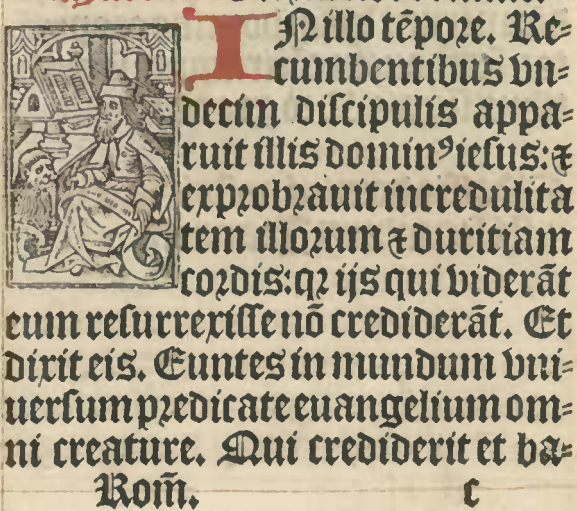 IN illo tēpore. Re=
cumbentibus vn=
decim discipulis appa=
ruit illis dominꝰ iesus: ⁊
exprobrauit incredulita
tem illorum ⁊ duritiam
cordis: qꝛ ijs qui viderāt
eum resurrexisse nō crediderāt. Et
dixit eis. Euntes in mundum vni=
uersum predicate euangelium om=
ni creature. Qui crediderit et ba=
Rom̄. c